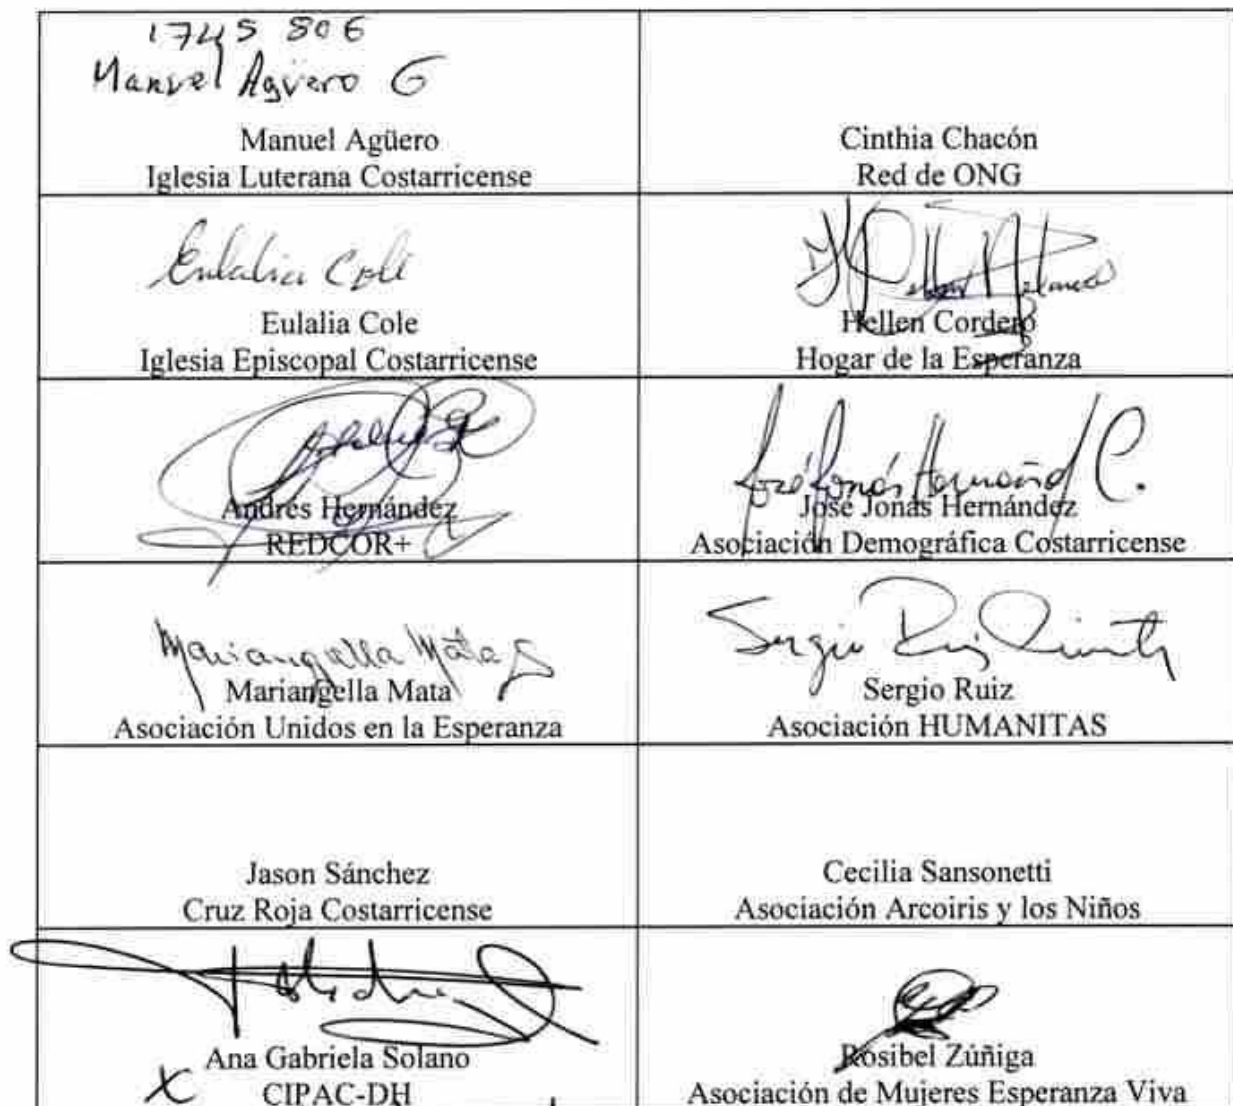 1745 806
Manuel Agüero G
Manuel Agüero
Iglesia Luterana Costarricense
Cinthia Chacón
Red de ONG
Eulalia Cole
Eulalia Cole
Iglesia Episcopal Costarricense
Hellen Cordero
Hogar de la Esperanza
Andrés Hernández
REDCOR+
José Jonás Hernánd C.
José Jonás Hernández
Asociación Demográfica Costarricense
Mariangella Mata S
Mariangella Mata
Asociación Unidos en la Esperanza
Sergio Ruiz
Sergio Ruiz
Asociación HUMANITAS
Jason Sánchez
Cruz Roja Costarricense
Cecilia Sansonetti
Asociación Arcoiris y los Niños
Ana Gabriela Solano
X CIPAC-DH
Rosibel Zúñiga
Asociación de Mujeres Esperanza Viva